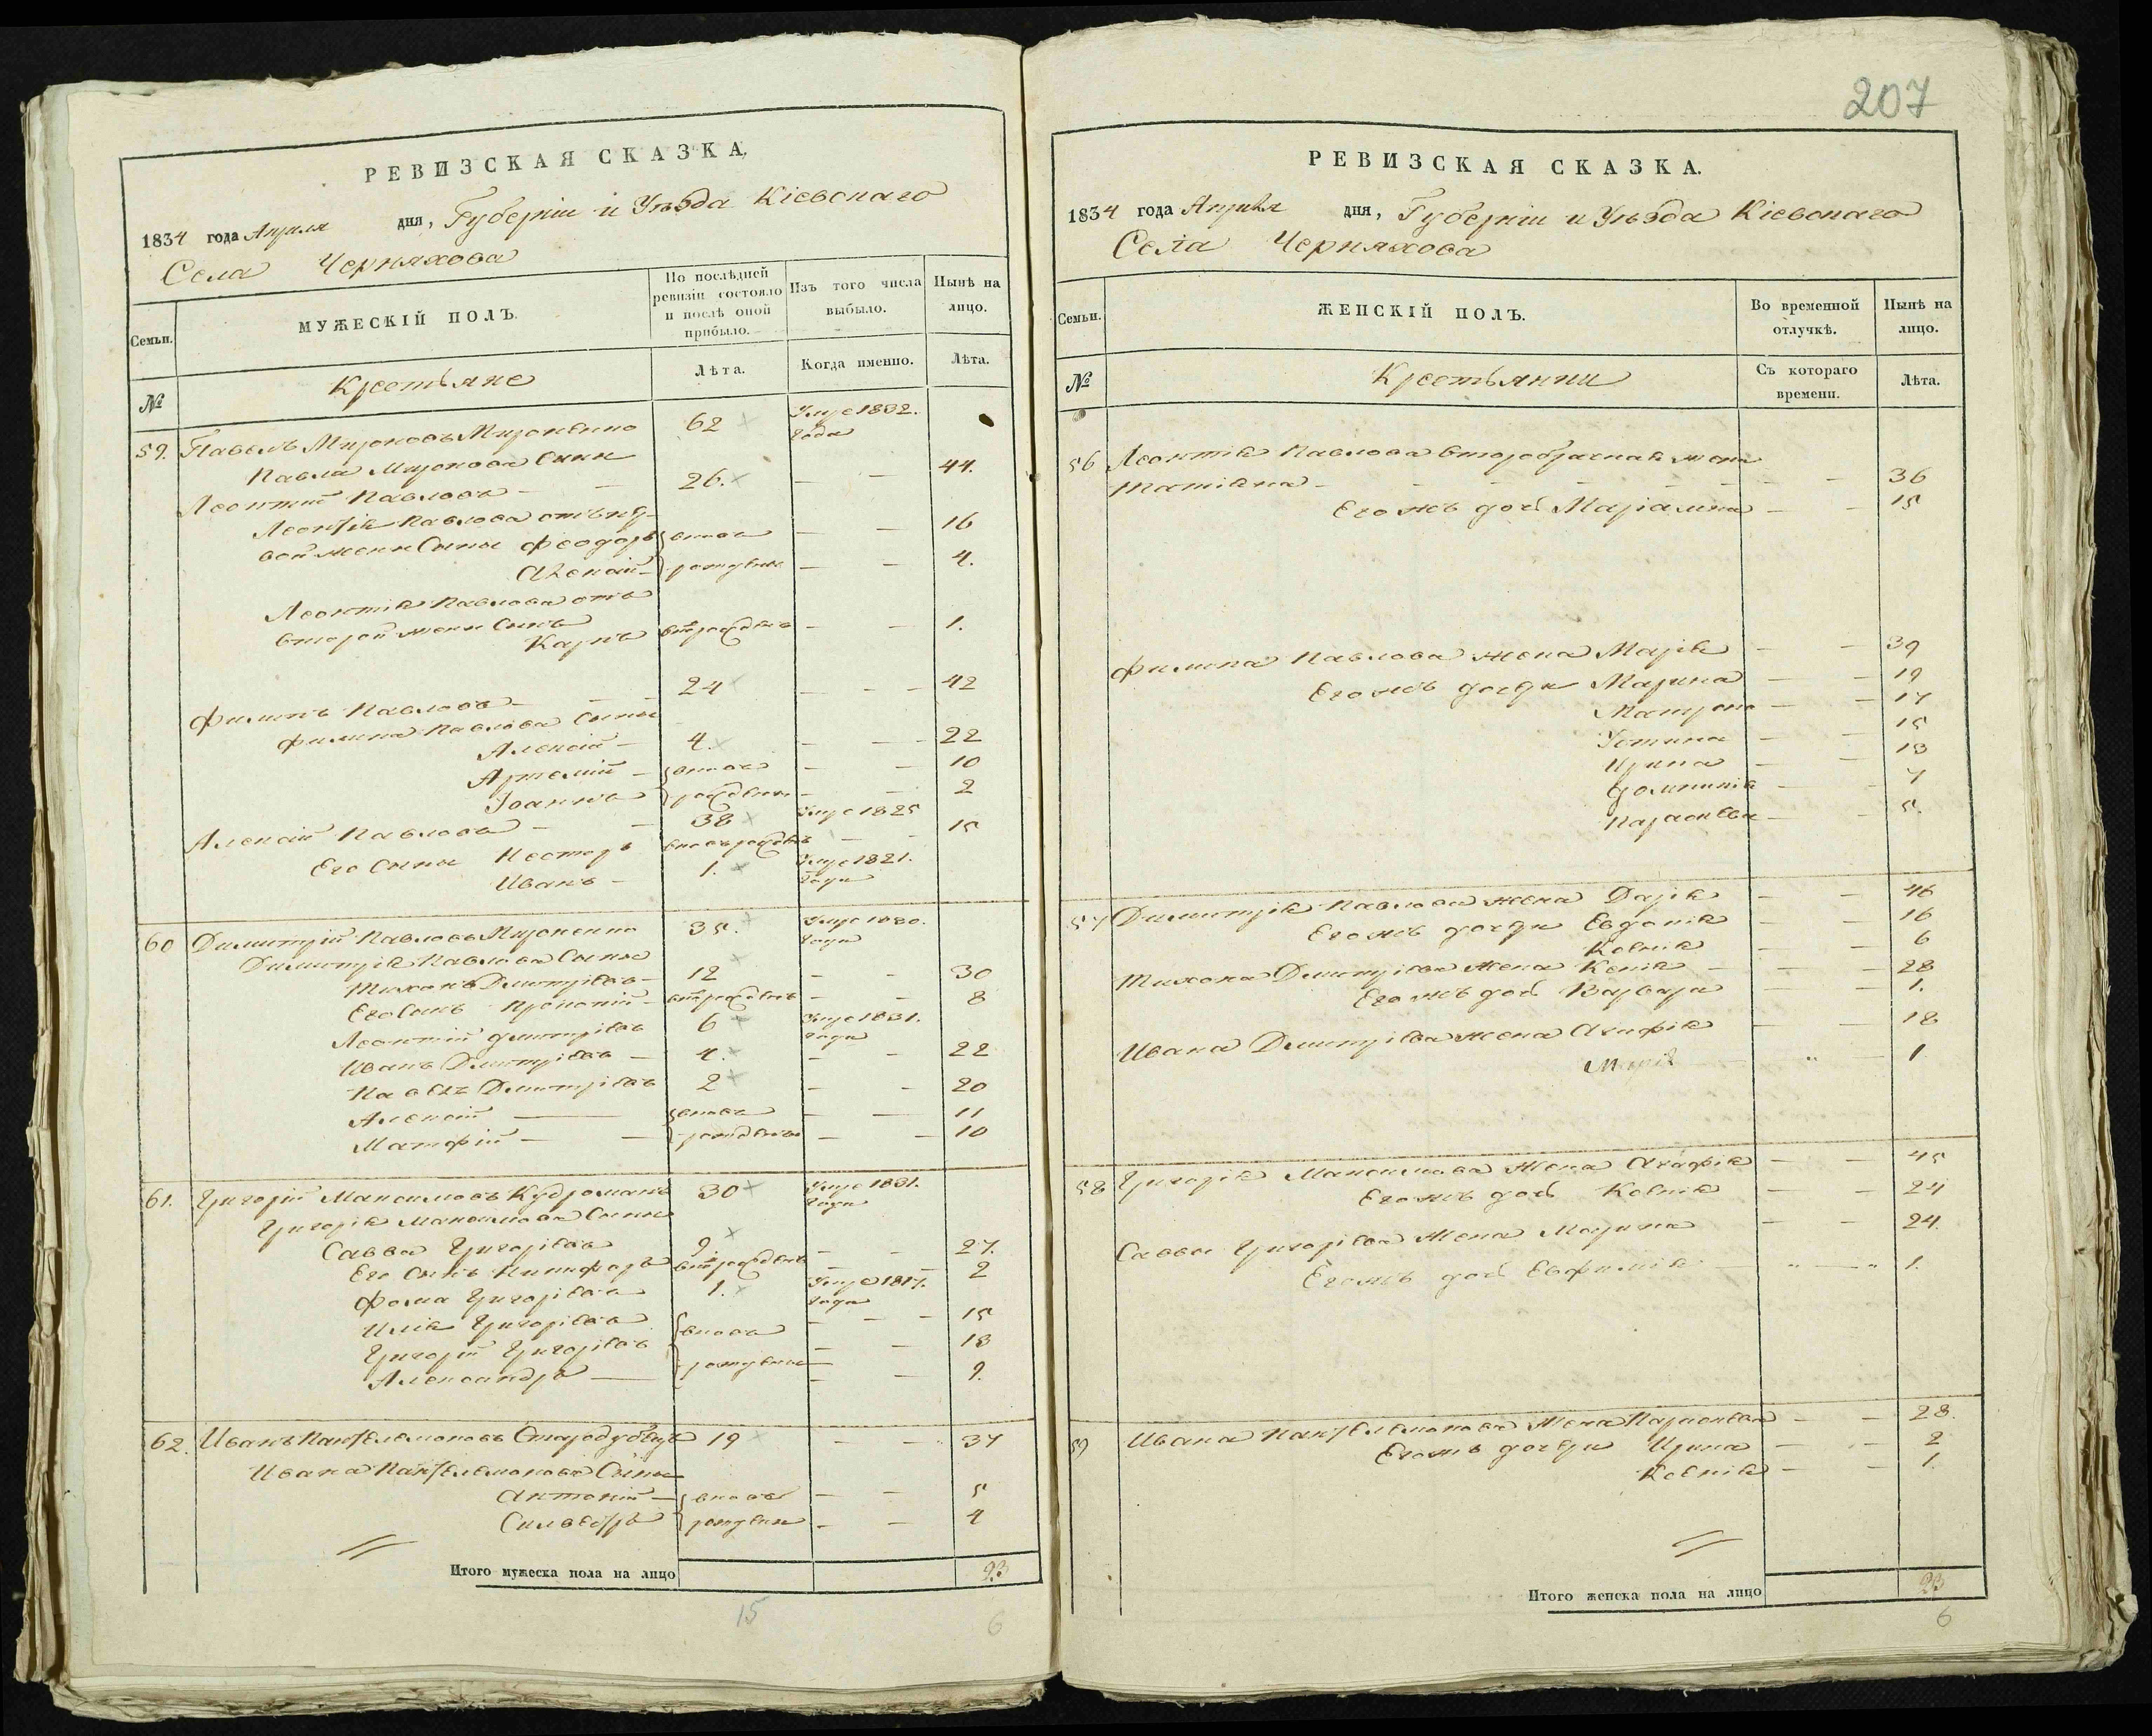 207
РЕВИЗСКАЯ СКАЗКА,
1834 года Апреля дня, Губерніи и Уѣзда Кіевскаго
Села Черняхова
Семьи. МУЖЕСКІЙ ПОЛЪ. По послѣдней ревизіи состояло и послѣ оной прибыло. Изъ того числа выбыло. Нынѣ на лицо.
№ Крестьяне Лѣта. Когда именно. Лѣта.
59. Павелъ Мироновъ Мироненко 62 Умре 1832. года
Павла Миронова Сынъ
Леонтій Павловъ 26. — — 44.
Леонтія Павлова отъ
вой жены Сыны Феодоръ вновь — — 16
Алексій рожденые — — 4.
Леонтія Павлова отъ
второй жены Сынъ
Карпъ — — 1.
Филипъ Павловъ — 24 — — 42
Филипа Павлова Сыны
Алексій — 4. — — 22
Артемій — вновь — — 10
Іоаннъ рожденые — — 2
Алексій Павловъ — 38 Умре 1825
Его Сыны Несторъ вновь рожденъ — — 15
Иванъ — 1. Умре 1821. года
60 Димитрій Павловъ Мироненко 35. Умре 1830. года
Димитрія Павлова Сыны
Тихонъ Димитріевъ — 12 — — 30
Его Сынъ Прокопій — — — 8
Леонтій Димитріевъ 6 Умре 1831. года
Иванъ Димитріевъ — 4. — — 22
Павелъ Димитріевъ 2 — — 20
Алексій — вновь — — 11
Матфій — рожденые — — 10
61. Григорій Максимовъ Кудроманъ 30 Умре 1831. года
Григорія Максимова Сыны
Савва Григоріевъ 9. — — 27.
Его Сынъ Никифоръ — — 2
Фома Григоріевъ 1. Умре 1817. года
Илія Григоріевъ вновь — — 15
Григорій Григоріевъ — — 13
Александръ — рожденые — — 9.
62. Иванъ Пантелемоновъ Стародубецъ 19 — — 37
Ивана Пантелемонова Сыны
Антоній — вновь — — 5
Сильвестръ рожденые — — 4
Итого мужеска пола на лицо 23
15 6
РЕВИЗСКАЯ СКАЗКА.
1834 года Апрѣля дня, Губерніи и Уѣзда Кіевскаго
Села Черняхова
Семьи. ЖЕНСКІЙ ПОЛЪ. Во временной отлучкѣ. Нынѣ на лицо.
№ Крестьянки Съ котораго времени. Лѣта.
56 Леонтія Павлова второбрачная жена
Татіяна — — — 36
Его жъ дочь Маріамна — — 15
Филипа Павлова жена Марія — — 39
Его жъ дочери Марина — — 19
Матрона — — 17
Устина — — 15
Ирина — — 13
Домникія — — 7
Параскева — — 5.
57 Димитрія Павлова жена Дарія — — 46
Его жъ дочери Евдокія — — 16
Ксенія — — 6
Тихона Димитріева жена Ксенія — — 28
Его жъ дочь Варвара — — 1.
Ивана Димитріева жена Агафія — — 18
Марія — „ — 1
58 Григорія Максимова жена Агафія — — 45
Его жъ дочь Ксенія — — 24
Саввы Григоріева жена Марина — — 24.
Его жъ дочь Евфимія — „ — „ 1.
59 Ивана Пантелемонова жена Параскева — — 28.
Его жъ дочери Ирина — — 2
Ксенія — — 1.
Итого женска пола на лицо 23
6